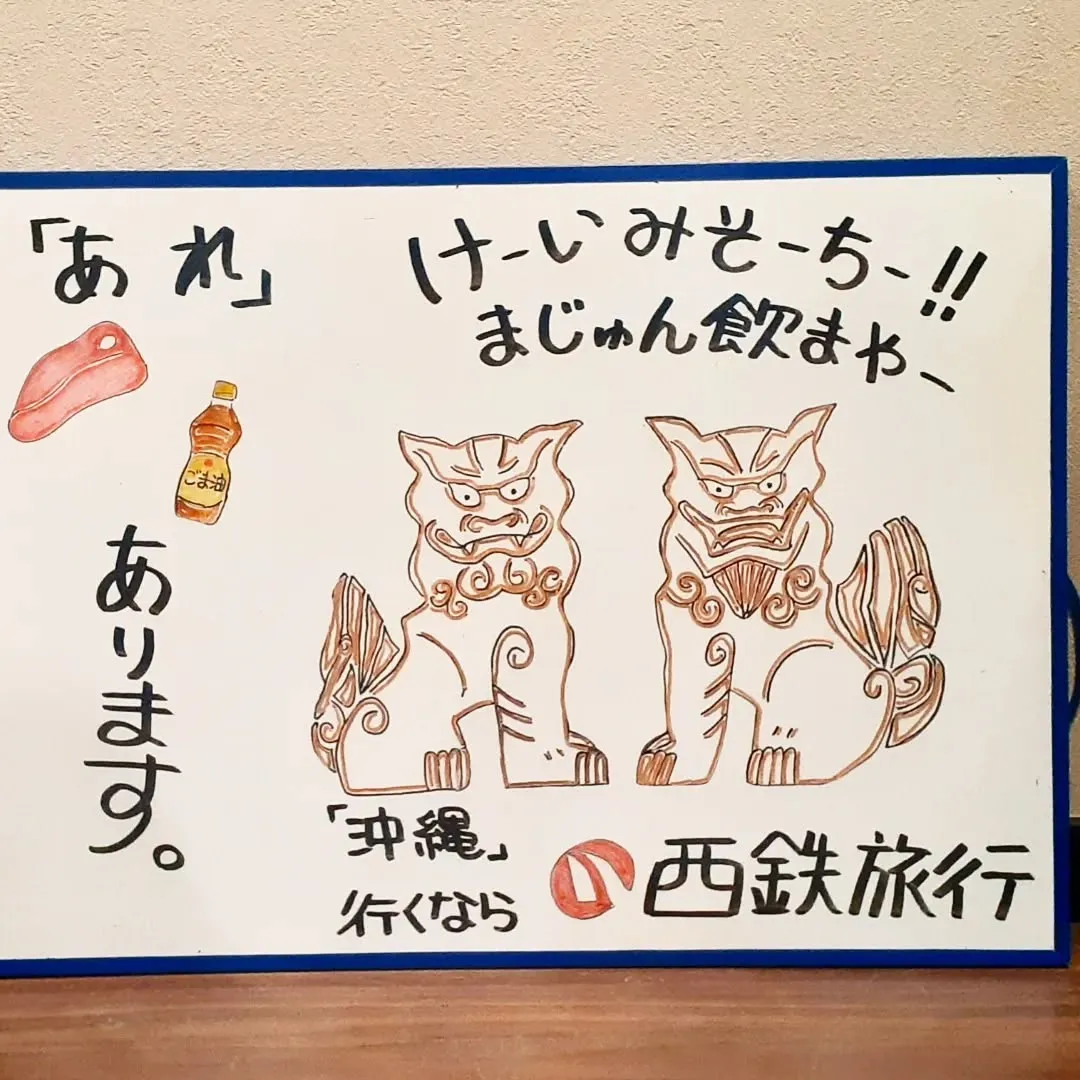 「あれ」
ごま油
あります。
けーいみそーちー!!
まじゅん飲まや、
「沖縄」
行くなら
西鉄旅行